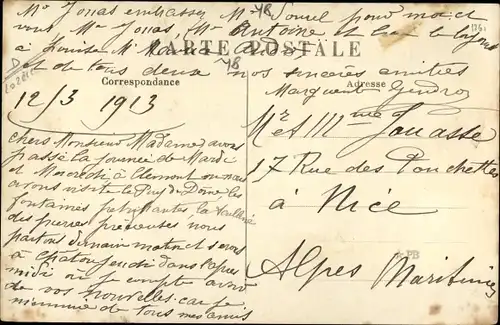 Mr Jonas embrassez Mr pour moi et
vous Mr Jonas, Mr Antoine et
à Louise Mr
et de tous deux nos sincères amitiés
Marguerite
CARTE POSTALE
Correspondance
Adresse
78
78
12/3 1913
Chers Monsieur Madame avons
passé la journée de Mardi
et Mercredi à Clermont ou nous
avons visité le Puy de Dôme, les
fontaines pétrifiantes, la
des pierres précieuses nous
partons demain matin et serons
à jeudi dans l'après
midi où je compte avoir
de vos nouvelles car je
de tous mes amis
Mr et Mme Jouasse
17 Rue des Ponchettes
à Nice
Alpes Maritimes
PB